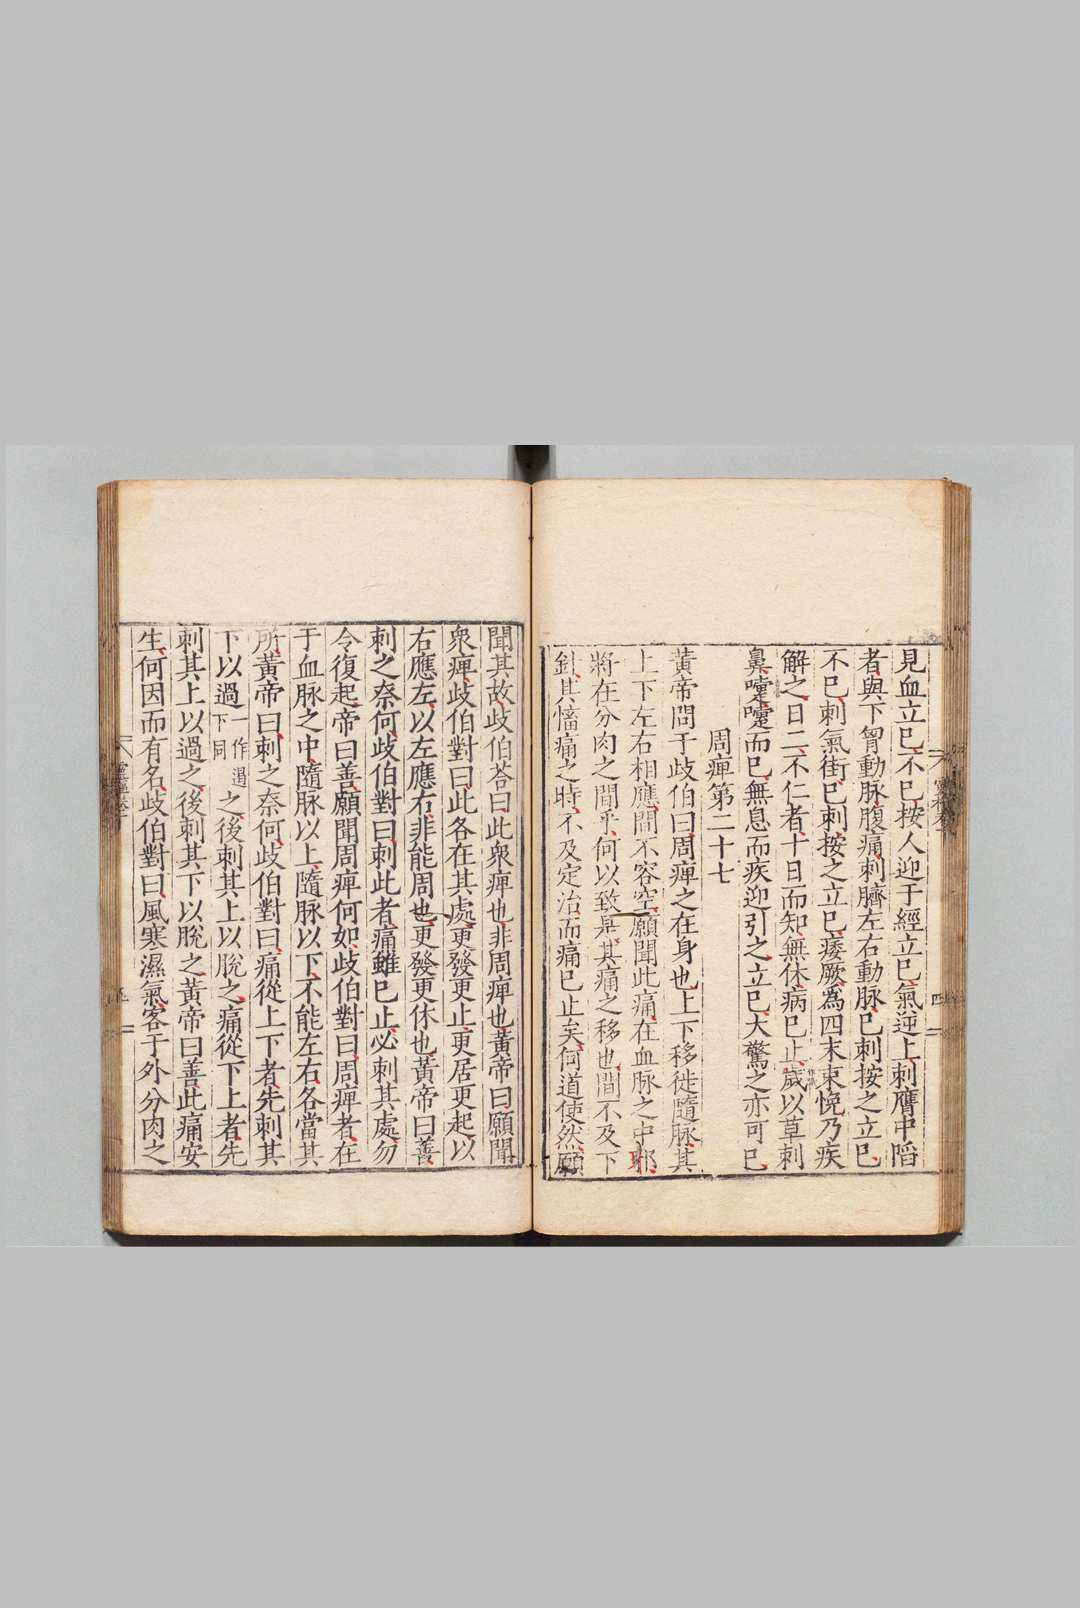 見血立已不已按人迎于經立已氣逆上刺膺中陷
者與下胷動脉腹痛刺臍左右動脉已刺按之立已
不已刺氣街已刺按之立已痿厥爲四末束悗乃疾
解之日二不仁者十日而知無休病已止歲以草刺
鼻嚔嚔而已無息而疾迎引之立已大驚之亦可已
周痺第二十七
黃帝問于歧伯曰周痺之在身也上下移徙隨脉其
上下左右相應間不容空願聞此痛在血脉之中邪
將在分肉之間乎何以致是其痛之移也間不及下
鍼其慉痛之時不及定治而痛已止矣何道使然願
聞其故歧伯荅曰此衆痺也非周痺也黃帝曰願聞
衆痺歧伯對曰此各在其處更發更止更居更起以
右應左以左應右非能周也更發更休也黃帝曰善
刺之柰何歧伯對曰刺此者痛雖已止必刺其處勿
令復起帝曰善願聞周痺何如歧伯對曰周痺者在
于血脉之中隨脉以上隨脉以下不能左右各當其
所黃帝曰刺之柰何歧伯對曰痛從上下者先刺其
下以過一作遏下同之後刺其上以脫之痛從下上者先
刺其上以過之後刺其下以脫之黃帝曰善此痛安
生何因而有名歧伯對曰風寒濕氣客于外分肉之